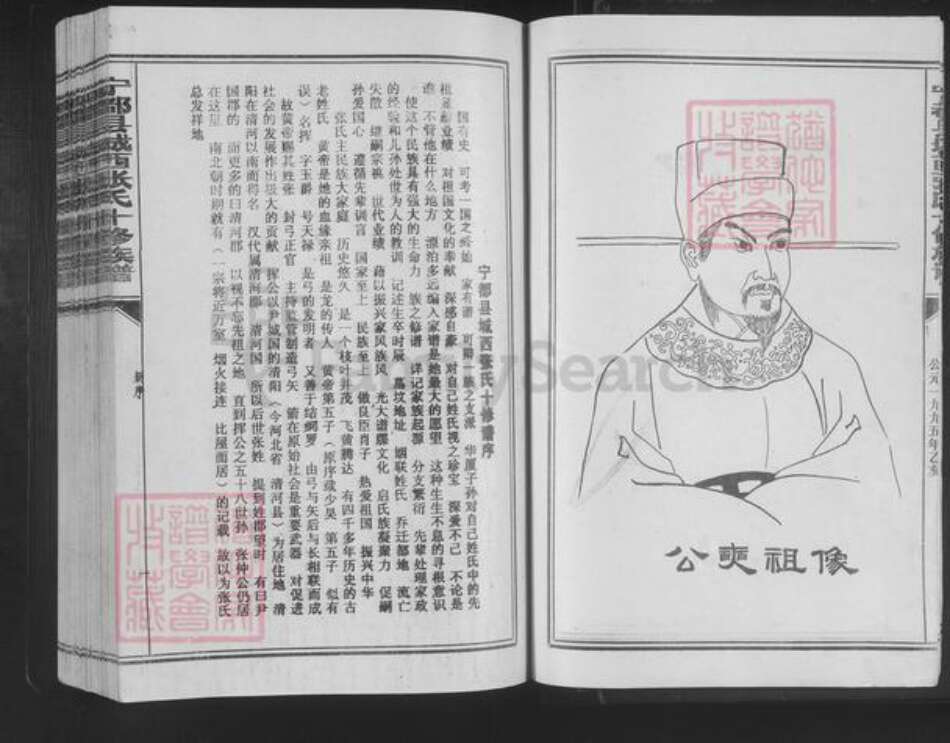 宁都县城西张氏十修族谱
公元一九九五年乙亥
公奭祖像
宁都县城西张氏十修谱序
国有史 可考一国之终始 家有谱 可明一族之支派 华厦子孙对自己姓氏中的先
祖丰功业绩 对祖国文化的奉献 深感自豪 对自己姓氏视之珍宝 深爱不已 不论是
谁 不管他在什么地方 漂泊多远编入家谱是她最大的愿望 这种生生不息的寻根意识
使这个民族具有强大的生命力 族之修谱 详记家族起源 分支繁衍 先辈处理家政
的经验和儿孙处世为人的教训 记述生卒时辰 墓坟地址 姻联姓氏 乔迁都地 流亡
失散 继嗣宗祧 世代业绩 藉以振兴家风族风 光大谱牒文化 启氏族凝聚力 促嗣
孙爱国心 遵循先辈训言 国家至上 民族至上 做良臣肖子 热爱祖国 振兴中华
张氏主民族大家庭 历史悠久 是一个枝叶并茂 飞黄腾达 有四千多年历史的古
老姓氏 黄帝是她的血缘亲祖 是龙的传人 黄帝第五子（原序载少昊 第五子 似有
误）名挥 字玉爵 号天禄 是弓的发明者 又善于结网罗 由弓与矢后与长相联而成
故黄帝赐其姓张 封弓正官 主持监管制造弓矢 箭在原始社会是重要武器 对促进
社会的发展作出极大的贡献 挥公以尹城国的清阳（今河北省 清河县）为居住地 清
阳在清河以南而得名 汉代属清河郡 清河国 所以后世张姓 提到姓郡望时 有曰尹
国郡的 而更多的曰清河郡 以视不忘先祖之地 直到挥公之五十八世孙 张仲公仍居
在这里 南北朝时期就有（一宗将近万室 烟火接连 比屋而居）的记载 故以为张氏
总发祥地
新序
一
谱学会
收藏
FamilySearch